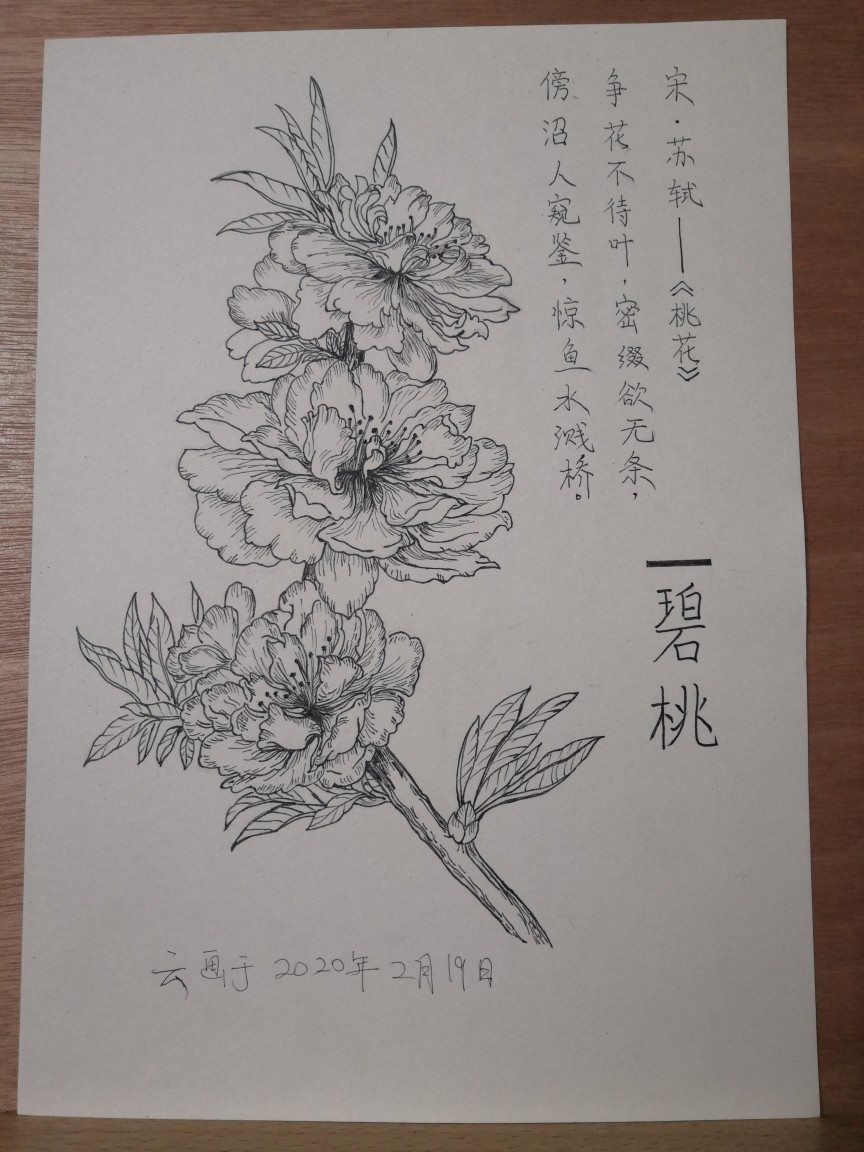 宋·苏轼——《桃花》
争花不待叶，密缀欲无条，
傍沼人窥鉴，惊鱼水溅桥。
碧桃
云画于 2020年 2月19日